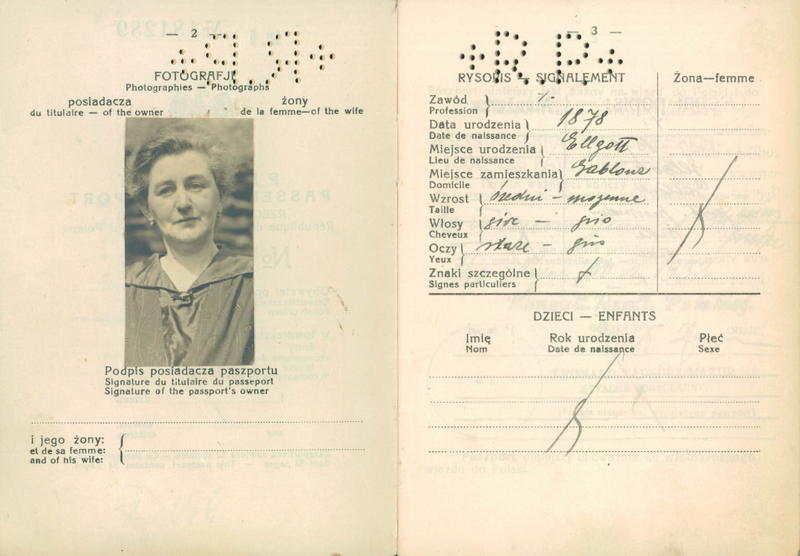 — 2 —
FOTOGRAFJE
Photographies — Photographs
posiadacza
du titulaire — of the owner
żony
de la femme—of the wife
Podpis posiadacza paszportu
Signature du titulaire du passeport
Signature of the passport's owner
i jego żony:
et de sa femme:
and of his wife:
3 —
R.P.
RYSOPIS — SIGNALEMENT
Żona—femme
Zawód
Profession
Data urodzenia 1878
Date de naissance
Miejsce urodzenia Ellgott
Lieu de naissance
Miejsce zamieszkania Gablonz
Domicile
Wzrost średni — moyenne
Taille
Włosy — gris
Cheveux
Oczy szare — gris
Yeux
Znaki szczególne
Signes particuliers
DZIECI — ENFANTS
Imię
Nom
Rok urodzenia
Date de naissance
Płeć
Sexe